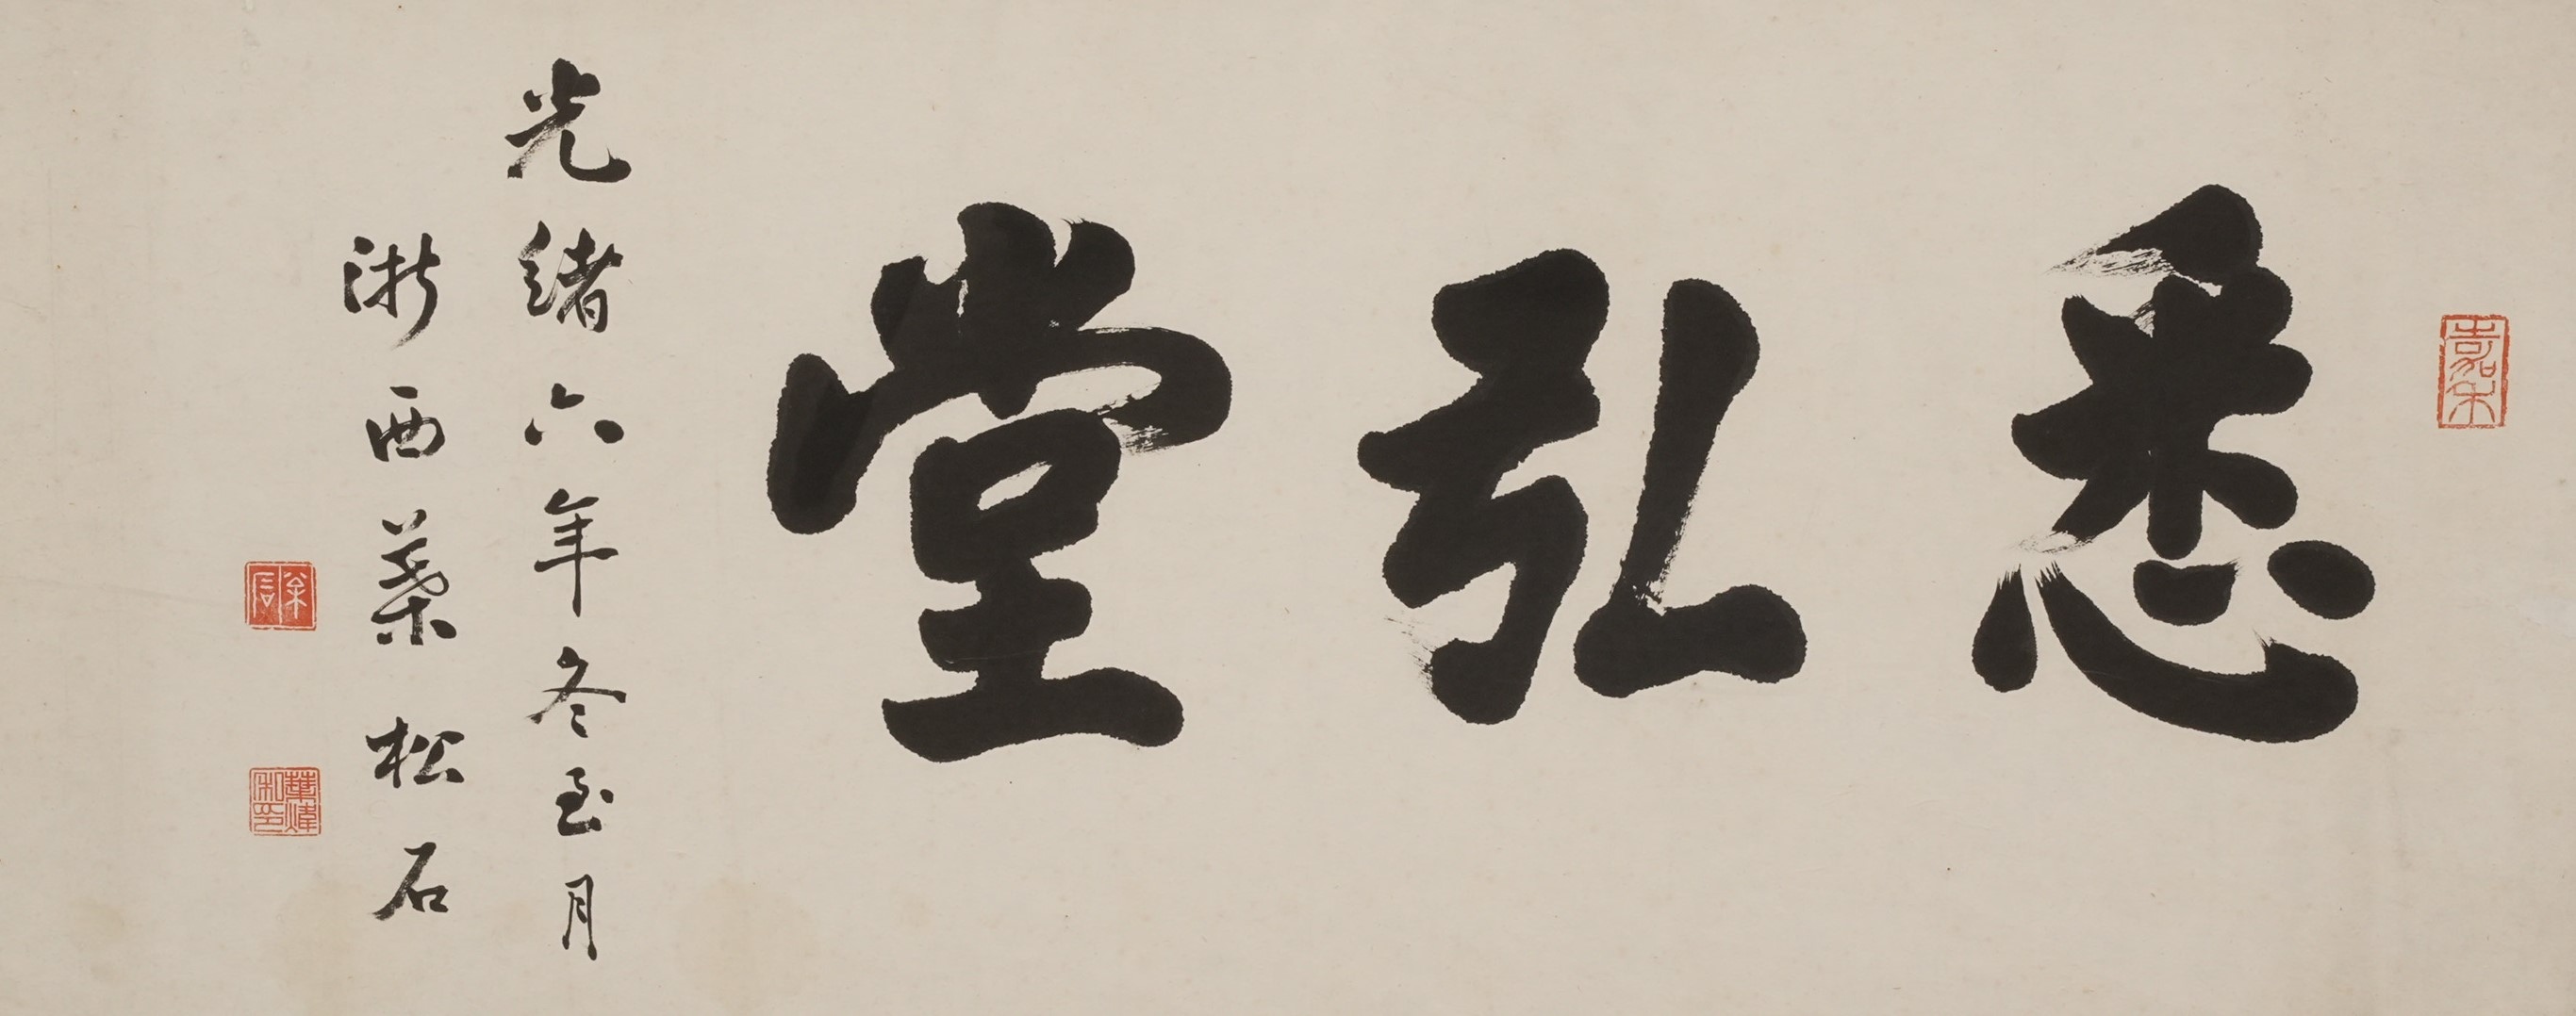 悉弘堂
光緒六年冬至月
浙西葉松石
嘉禾